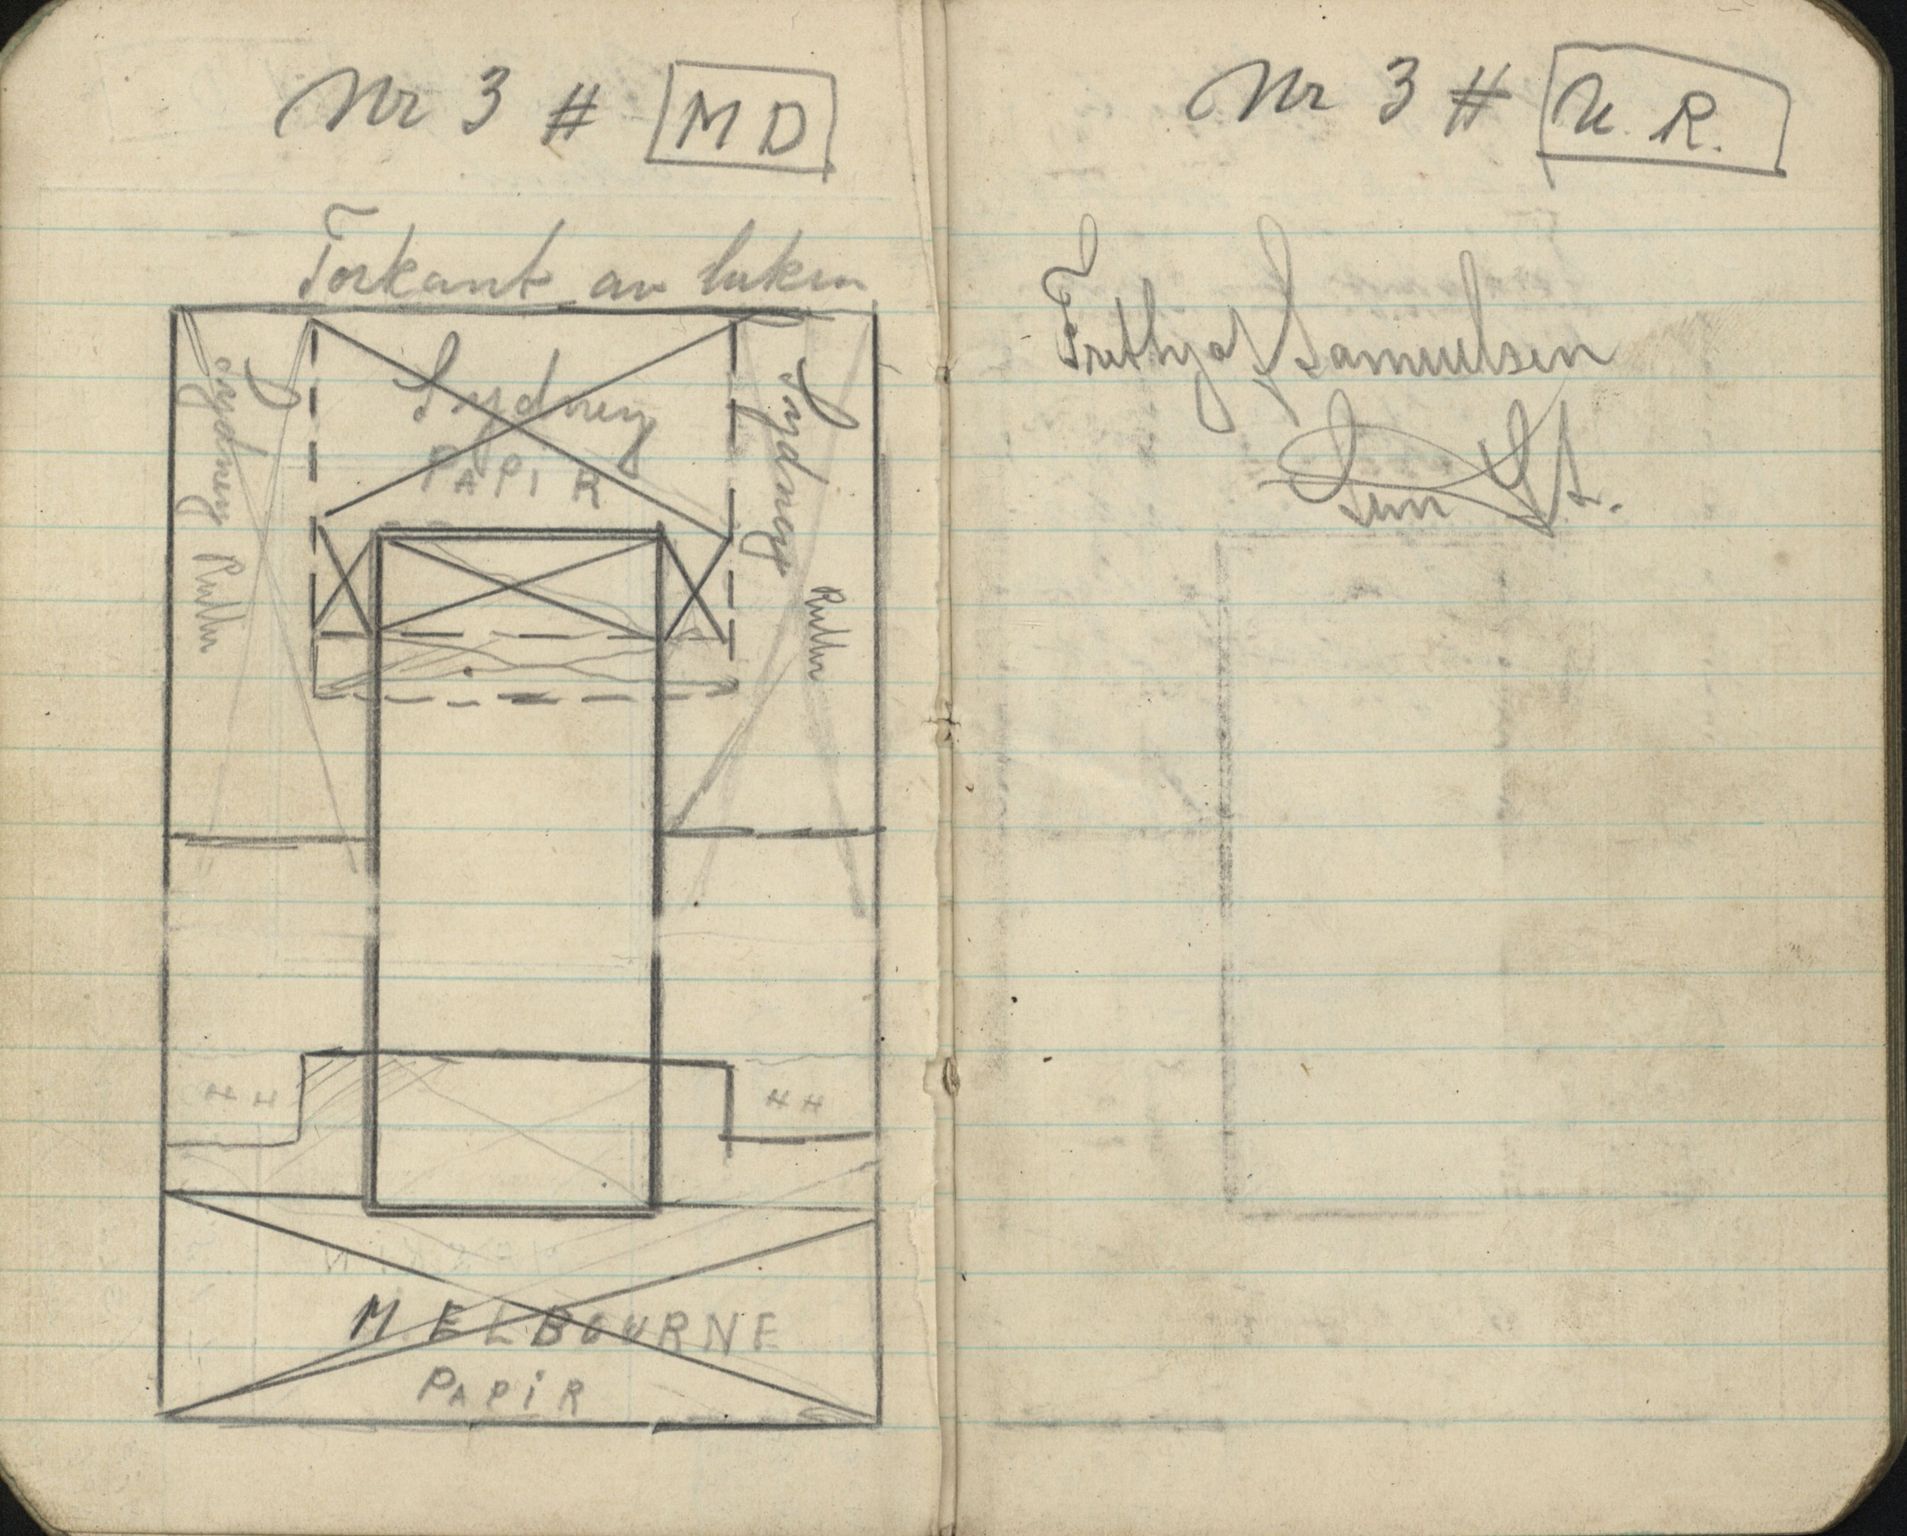 Nr 3 # MD
Forkant av luken
Sydney
PAPIR
Sydney Ruller
Sydney Ruller
HH
HH
MELBOURNE
PAPIR
Nr 3 # U. R.
Frithjof Samuelsen